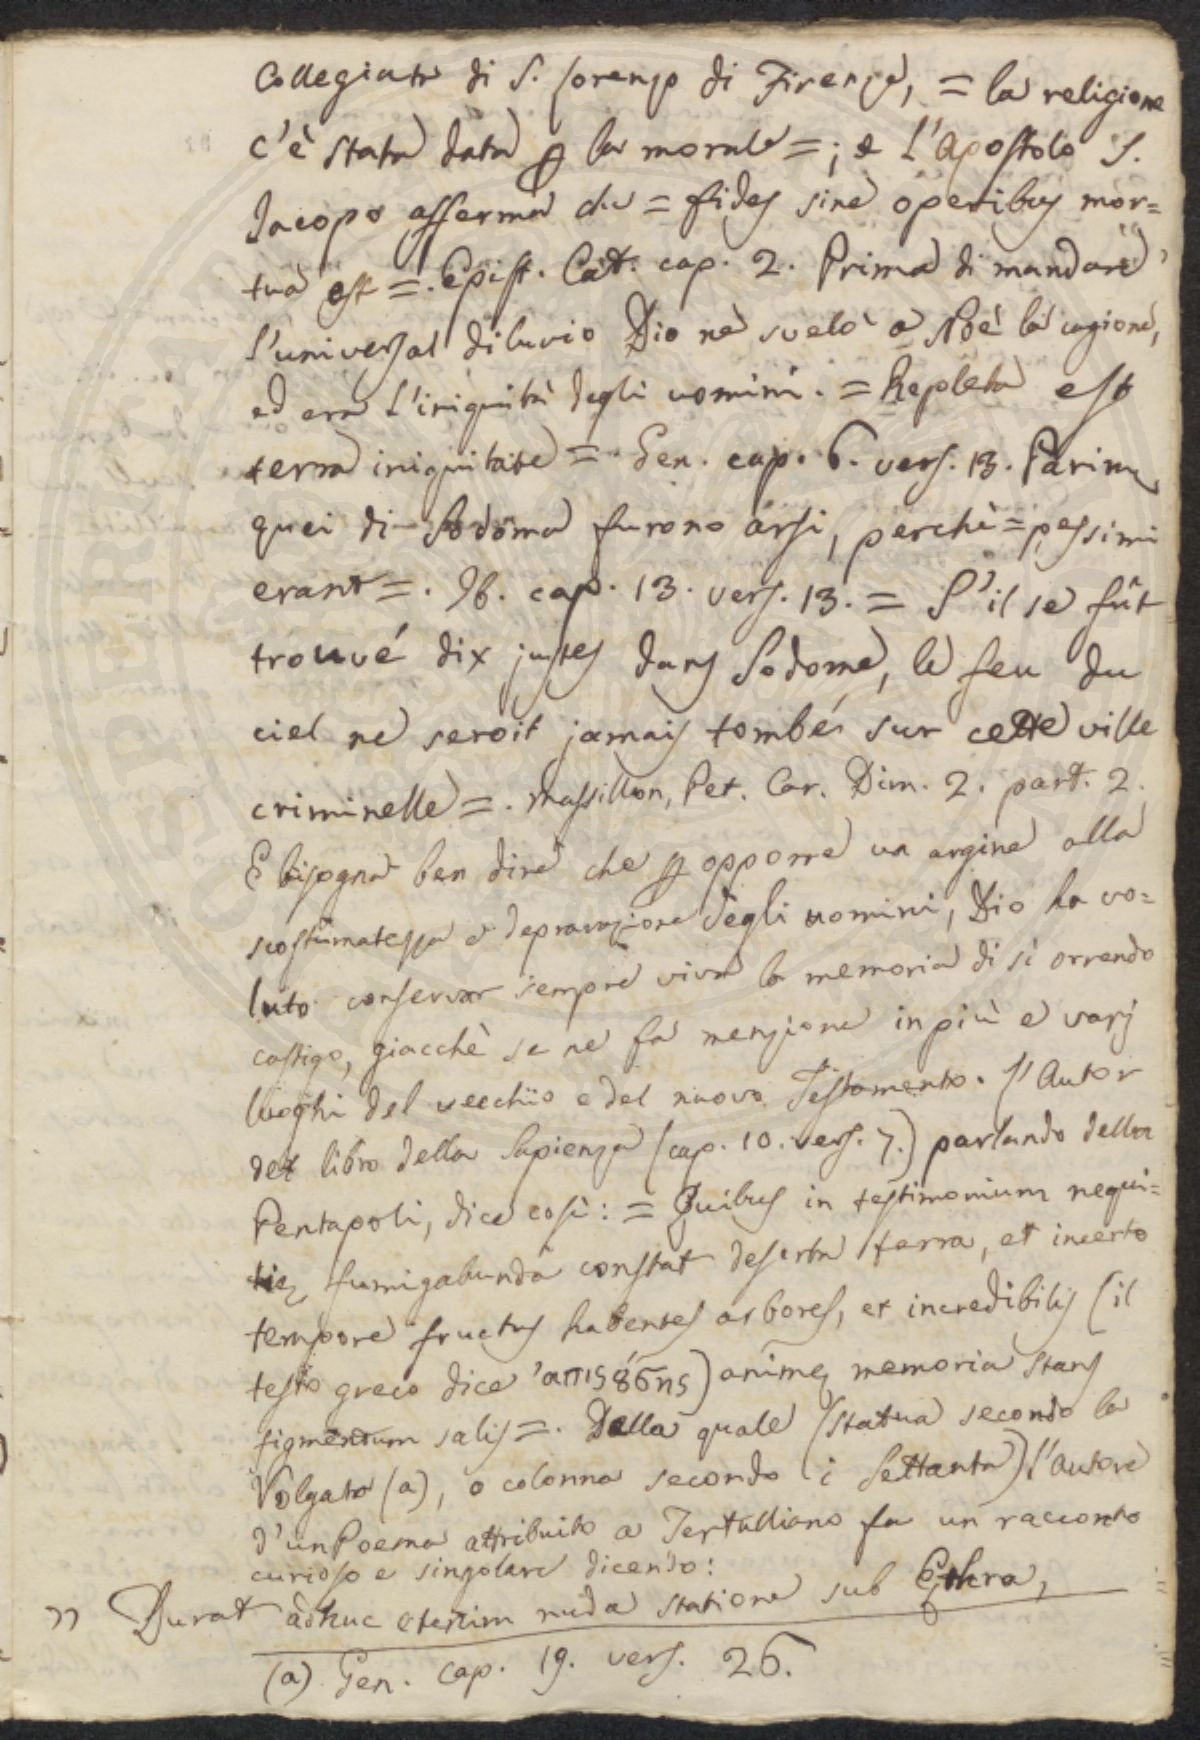 Collegiata di S. Lorenzo di Firenze, = la religione
c'è stata data p la morale =; e l'Apostolo S.
Jacopo afferma che = fides sine operibus mor=
tua est =. Epist. Catt. cap. 2. Prima di mandare
l'universal diluvio Dio ne svelò a Noè la cagione,
ed era l'iniquità degli uomini. = Repleta est
terra iniquitate = Gen. cap. 6. vers. 13. Parim
quei di Sodoma furono arsi, perchè = pessimi
erant =. Ib. cap. 13. vers. 13. = S'il se fût
trouvé dix justes dans Sodome, le feu du
ciel ne seroit jamais tombé sur cette ville
criminelle =. Massillon, Pet. Car. Dim. 2. part. 2.
E bisogna ben dire che p opporre un argine alla
scostumatezza e depravazione degli uomini, Dio ha vo=
luto conservar sempre viva la memoria di sì orrendo
castigo, giacchè se ne fa menzione in più e varj
luoghi del vecchio e del nuovo Testamento. L'Autor
del libro della Sapienza (cap. 10. vers. 7.) parlando della
Pentapoli, dice così: = Quibus in testimonium nequi=
tię fumigabunda constat deserta terra, et incerto
tempore fructus habentes arbores, et incredibilis (il
testo greco dice ἀπιςȣ́σης) animę memoria stans
figmentum salis =. Della quale (statua secondo la
Volgata (a), o colonna secondo i Settanta) l'Autore
d'un Poema attribuito a Tertulliano fa un racconto
curioso e singolare dicendo:
" Durat adhuc etenim nuda statione sub Ęthra,
(a) Gen. cap. 19. vers. 26.